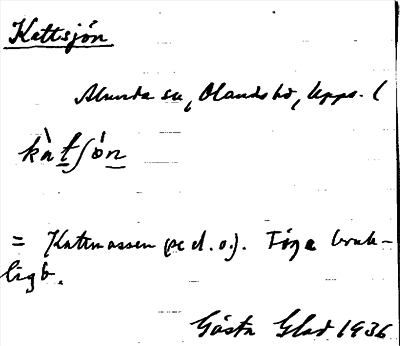 Kattsjön
Alunda sn, Olands hd, Upps. l
kàtʃón
= Kattmossen (se d. o.). Föga bruk-
ligt.
Gösta Glad 1936